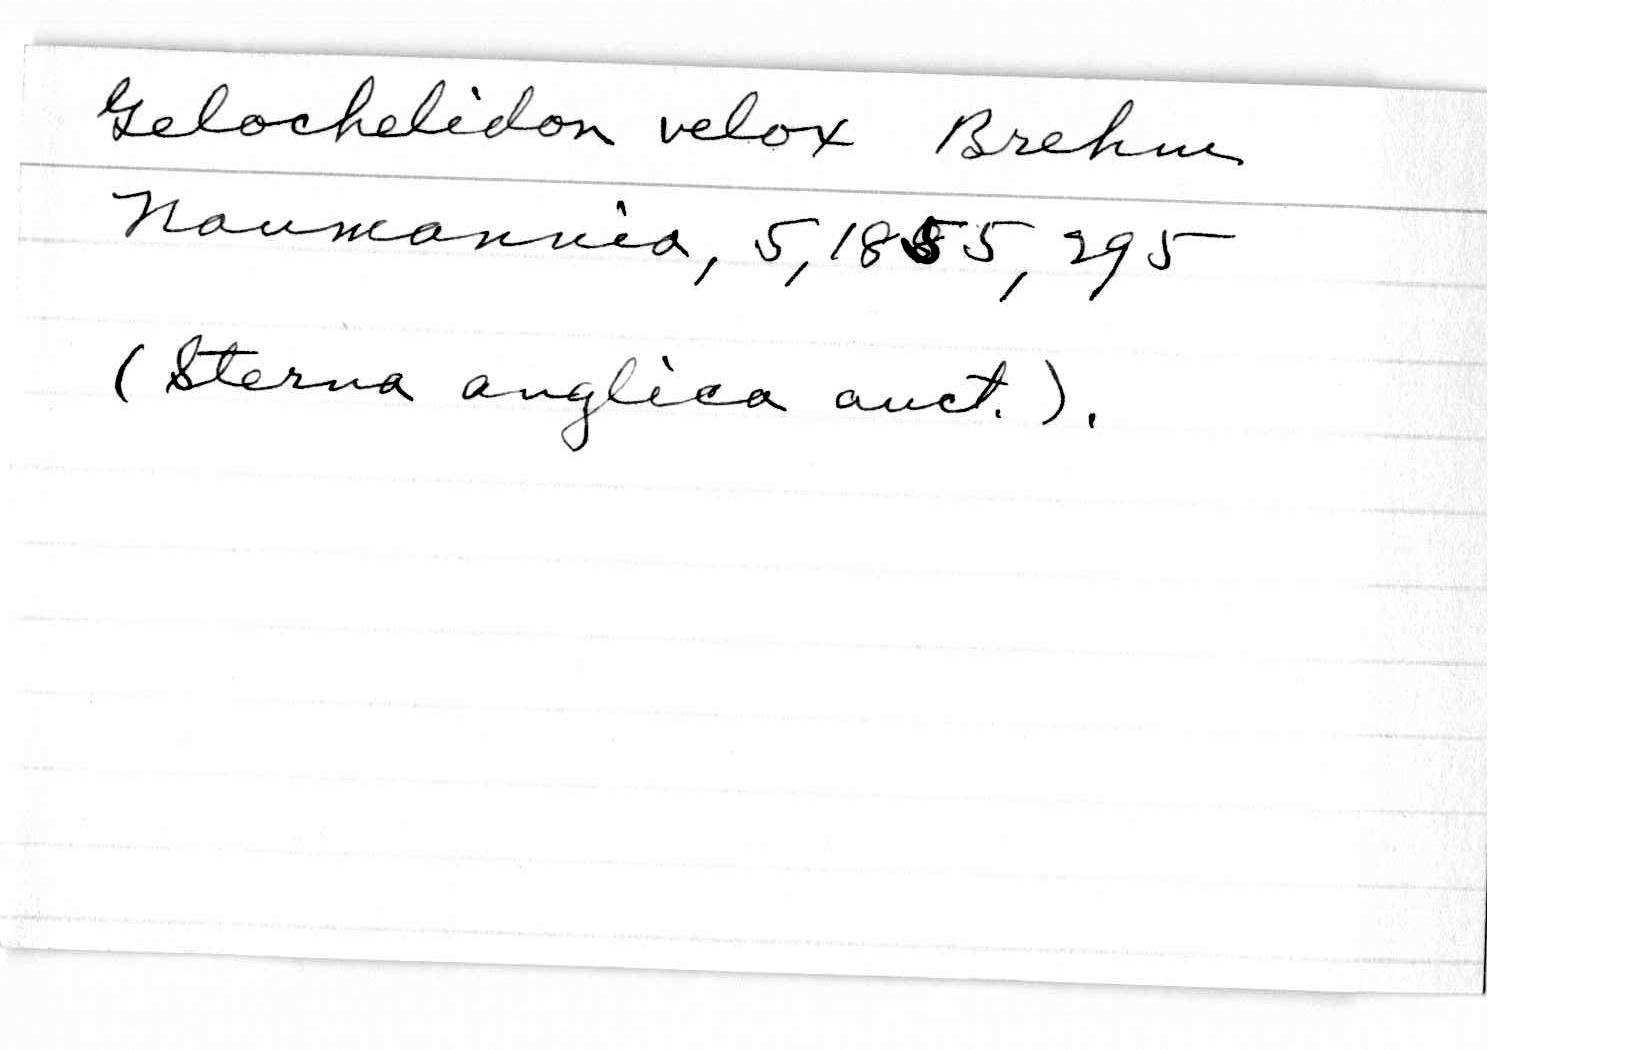 Gelochelidon velox Brehm
Naumannia, 5, 1855, 295
(Sterna anglica auct.).